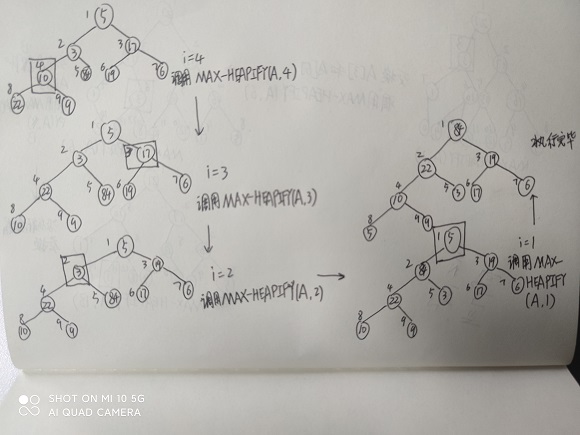 1 5
2 3 3 17
4 10 5 84 6 19 7 6
8 22 9 9
i=4
调用 MAX-HEAPIFY(A,4)
1 5
2 3 3 17
4 22 5 84 6 19 7 6
8 10 9 9
i=3
调用MAX-HEAPIFY(A,3)
1 5
2 3 3 19
4 22 5 84 6 17 7 6
8 10 9 9
i=2
调用MAX-HEAPIFY(A,2)
1 5
2 84 3 19
4 22 5 3 6 17 7 6
8 10 9 9
i=1
调用 MAX-
HEAPIFY
(A,1)
1 84
2 22 3 19
4 10 5 3 6 17 7 6
8 5 9 9
执行完毕
SHOT ON MI 10 5G
AI QUAD CAMERA